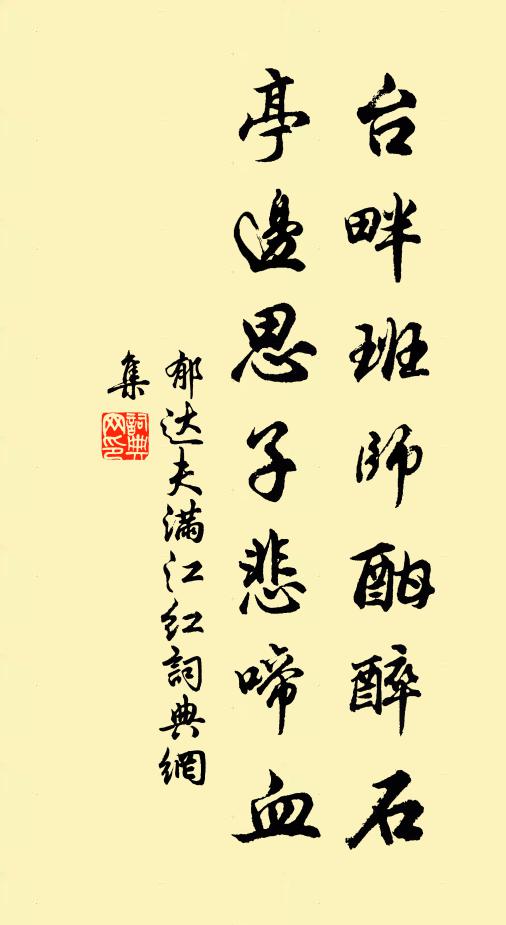 台畔班師酣醉石
亭邊思子悲啼血
郁达夫满江红詞典網
集
詞典网印